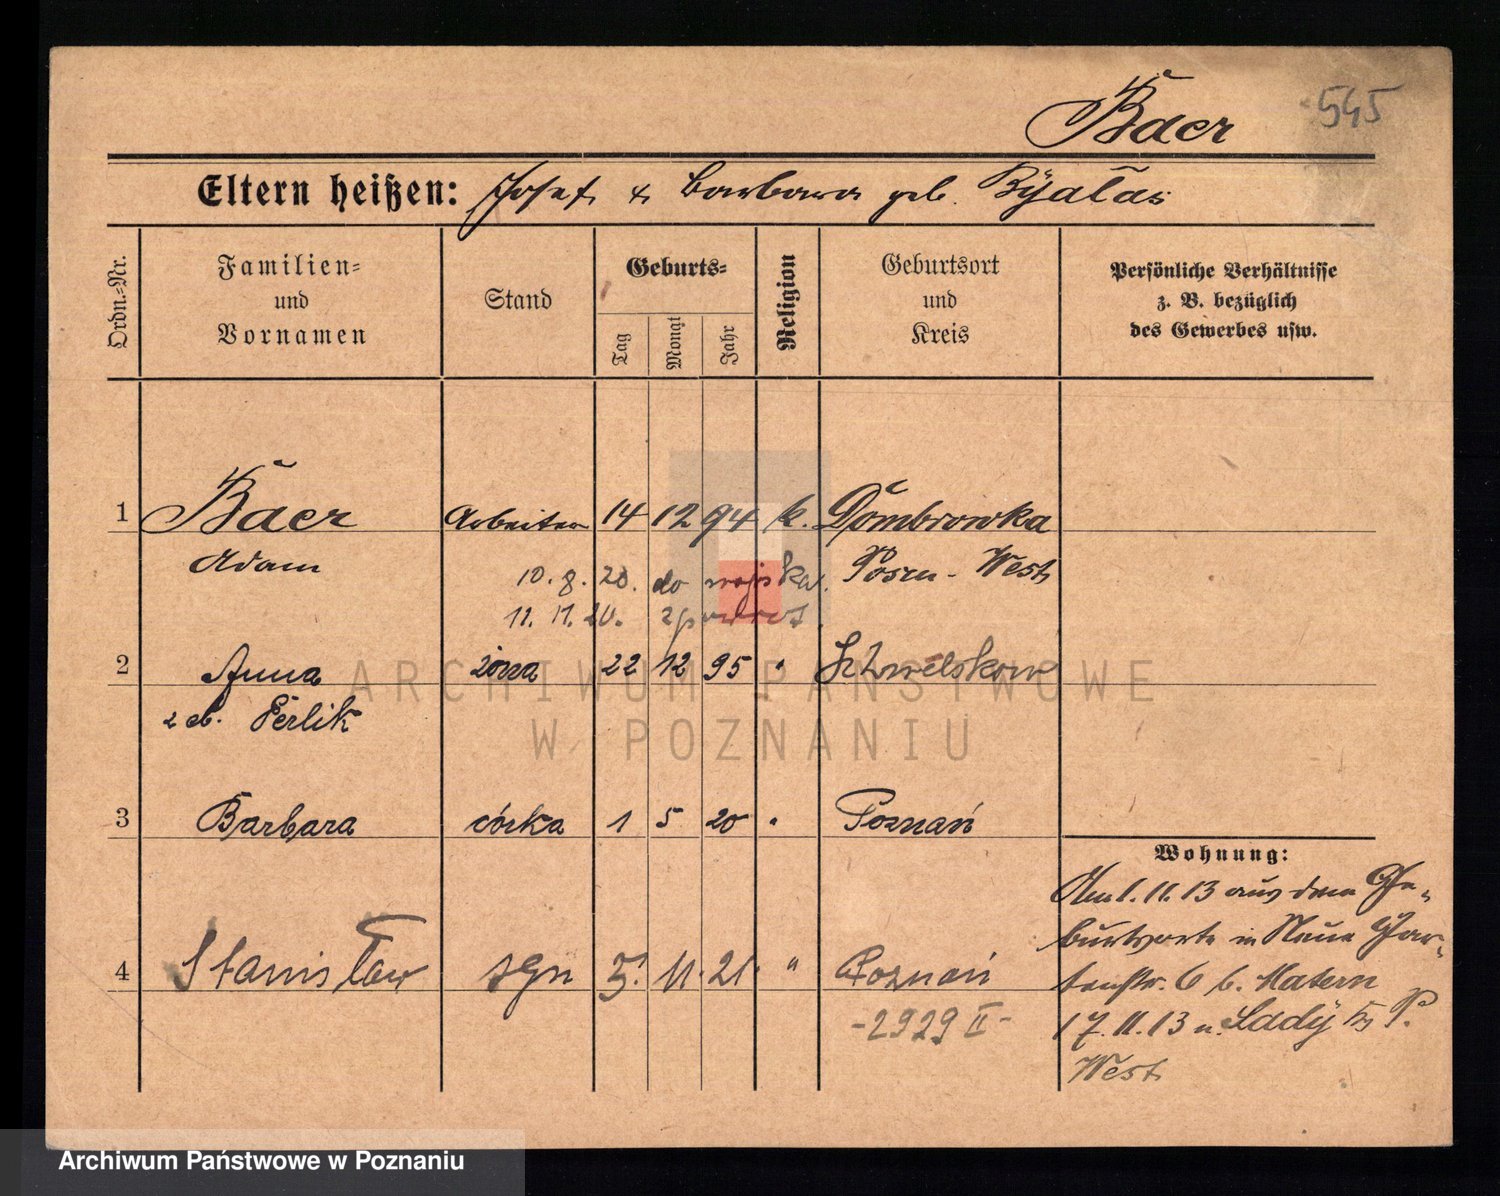 545
Baer
Eltern heißen: Josef u Barbara geb. Byatas
Ordn.-Nr.
Familien-
und
Vornamen
Stand
Geburts-
Tag
Monat
Jahr
Religion
Geburtsort
und
Kreis
Persönliche Verhältnisse
z. B. bezüglich
des Gewerbes usw.
1 Baer Arbeiter 14 12 94 k. Dombrowka
Adam Posen - West
10. 8. 20. do wojska.
11. 11. 20. zpowrot.
2 Anna żona 22 12 95 "
Ferlik
3 Barbara córka 1 5 20 " Poznań
4 Stanisław syn 5. 11. 21. " Poznań
-2929 II-
Wohnung:
Am 1. 11. 13 aus dem Ge-
burtsorte in Neue Gar-
tenstr. 6 b. Matern
17. 11. 13 n. Sady Krs P.
West
ARCHIWUM PAŃSTWOWE
W POZNANIU
Archiwum Państwowe w Poznaniu